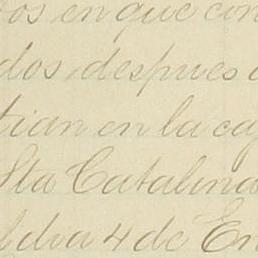 tos en que con
dos despues
tian en la ca
Sta Catalina
el dia 4 de En